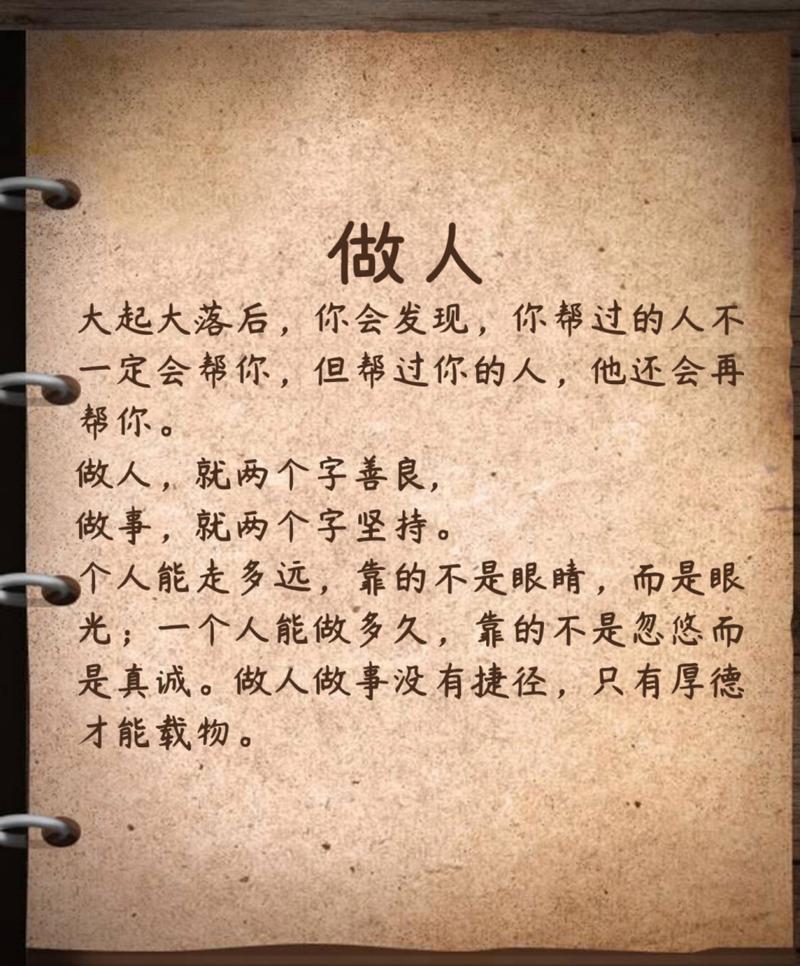 做人
大起大落后，你会发现，你帮过的人不
一定会帮你，但帮过你的人，他还会再
帮你。
做人，就两个字善良，
做事，就两个字坚持。
个人能走多远，靠的不是眼睛，而是眼
光；一个人能做多久，靠的不是忽悠而
是真诚。做人做事没有捷径，只有厚德
才能载物。